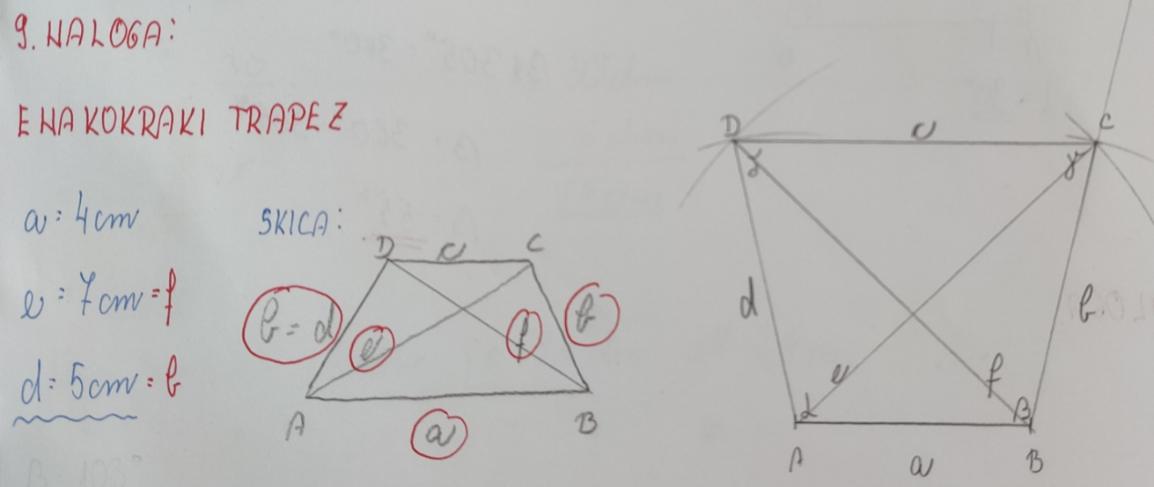 9. NALOGA:
ENAKOKRAKI TRAPEZ
a = 4cm
e = 7cm = f
d = 5cm = b
SKICA:
D c C
b = d e f b
A a B
D c C
γ γ
d b
e f
α β
A a B